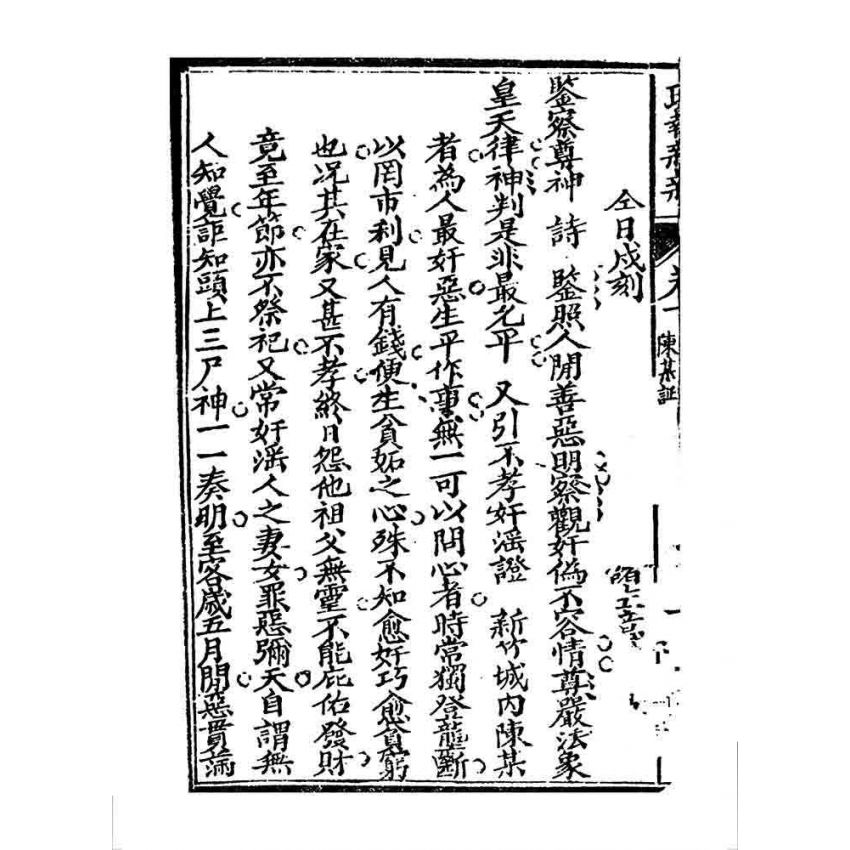 卷一
陳某証
仝日戍刻
鑒察尊神　詩　鑒照人間善惡明察觀奸偽不容情尊嚴法象
皇天律神判是非最光平　又引不孝奸淫證　新竹城內陳某
者為人最奸惡生平作事無一可以問心者時常獨登龍斷
以罔市利見人有錢便生貪妬之心殊不知愈奸巧愈貧窮
也况其在家又甚不孝終日怨他祖父無靈不能庇佑發財
竟至年節亦不祭祀又常奸淫人之妻女罪惡彌天自謂無
人知覺詎知頭上三尸神一一奏明至客歲五月間惡貫滿